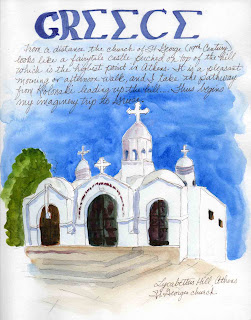 GREECE
From a distance the church of St George (19th Century)
looks like a fairytale castle perched on top of the hill
which is the highest point in Athens. It is a pleasant
morning or afternoon walk, and I take the pathway
from Kolonaki leading up the hill... Thus begins
my imaginary trip to Greece.
Lycabettus Hill, Athens
St Georges church